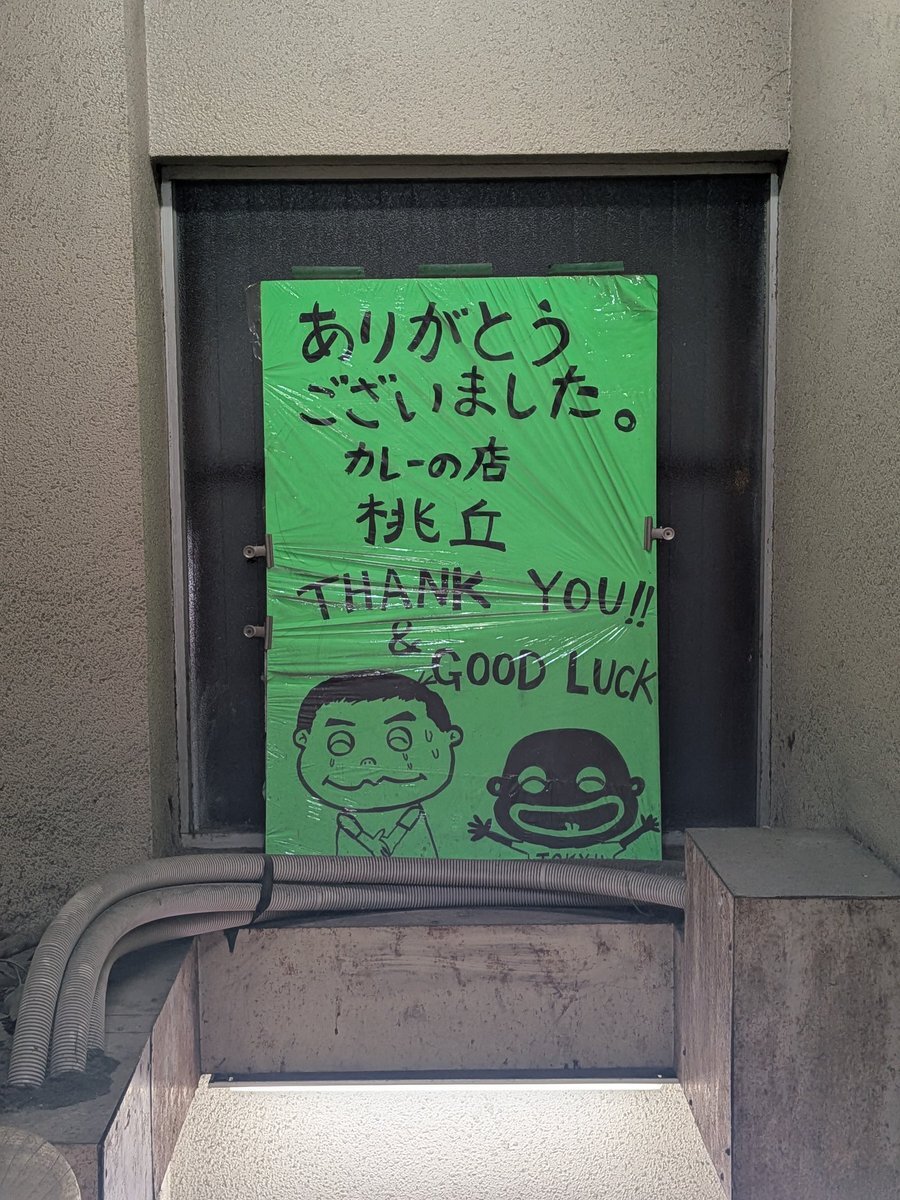 ありがとう
ございました。
カレーの店
桃丘
THANK YOU!!
&
GOOD LUCK